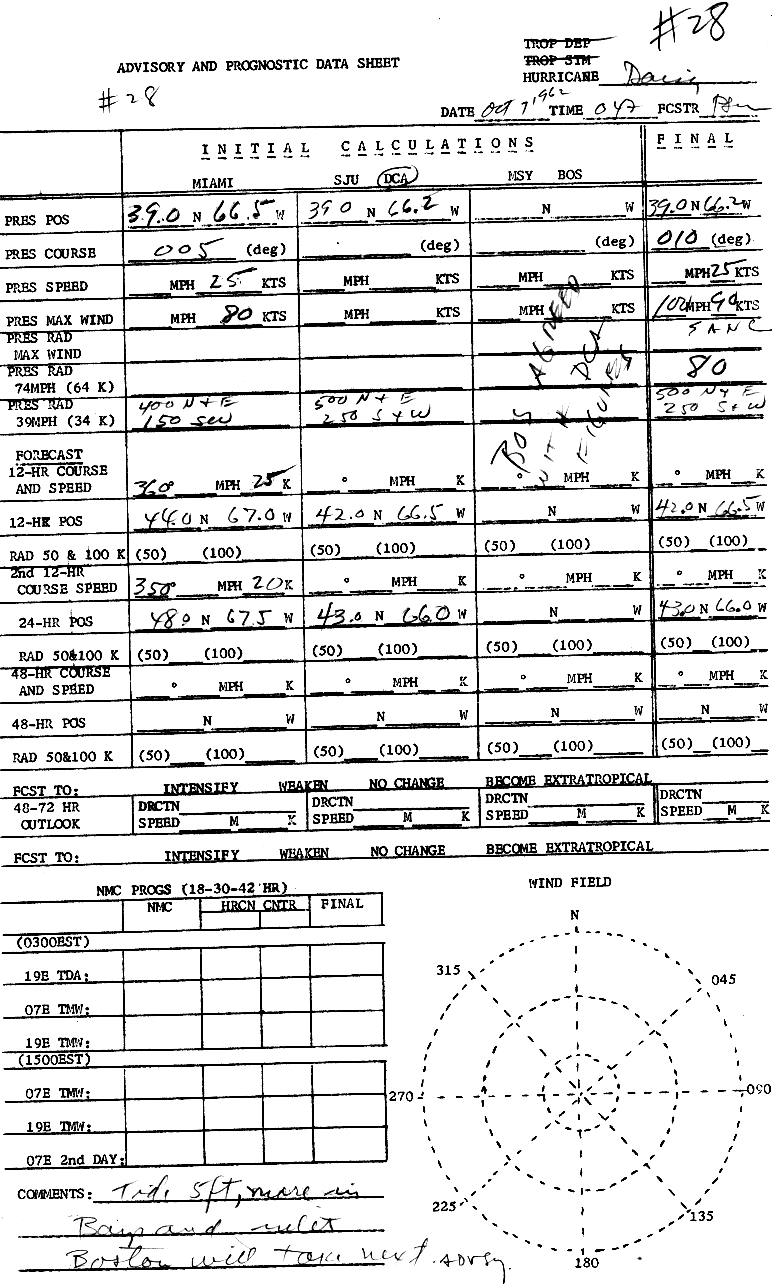 #28
TROP DEP
ADVISORY AND PROGNOSTIC DATA SHEET TROP STM
HURRICANE Daisy
#28
DATE Oct 7, 1962 TIME 04Z FCSTR
INITIAL CALCULATIONS FINAL
MIAMI SJU DCA MSY BOS
PRES POS 39.0 N 66.5 W 39 0 N 66.2 W N W 39.0 N 66.2 W
PRES COURSE 005 (deg) (deg) (deg) 010 (deg)
PRES SPEED MPH 25 KTS MPH KTS MPH KTS MPH 25 KTS
PRES MAX WIND MPH 80 KTS MPH KTS MPH KTS 100 MPH 90 KTS
PRES RAD
MAX WIND
PRES RAD
74MPH (64 K) 80
PRES RAD 400 N+E 500 N+E 500 N+E
39MPH (34 K) 150 SW 250 S+W 250 S+W
BOS AGREED
WITH DCA
FIGURES
FORECAST
12-HR COURSE
AND SPEED 360° MPH 25 K ° MPH K ° MPH K ° MPH K
12-HR POS 44.0 N 67.0 W 42.0 N 66.5 W N W 42.0 N 66.5 W
RAD 50 & 100 K (50) (100) (50) (100) (50) (100) (50) (100)
2nd 12-HR
COURSE SPEED 350° MPH 20 K ° MPH K ° MPH K ° MPH K
24-HR POS 48.0 N 67.5 W 43.0 N 66.0 W N W 43.0 N 66.0 W
RAD 50&100 K (50) (100) (50) (100) (50) (100) (50) (100)
48-HR COURSE
AND SPEED ° MPH K ° MPH K ° MPH K ° MPH K
48-HR POS N W N W N W N W
RAD 50&100 K (50) (100) (50) (100) (50) (100) (50) (100)
FCST TO: INTENSIFY WEAKEN NO CHANGE BECOME EXTRATROPICAL
48-72 HR DRCTN DRCTN DRCTN DRCTN
OUTLOOK SPEED M K SPEED M K SPEED M K SPEED M K
FCST TO: INTENSIFY WEAKEN NO CHANGE BECOME EXTRATROPICAL
NMC PROGS (18-30-42 HR)
NMC HRCN CNTR FINAL
(0300EST)
19E TDA:
07E TMW:
19E TMW:
(1500EST)
07E TMW:
19E TMW:
07E 2nd DAY:
WIND FIELD
N
315 045
270 090
225 135
180
COMMENTS: Tide 5ft, more in
Bays and inlet
Boston will take next advsy.